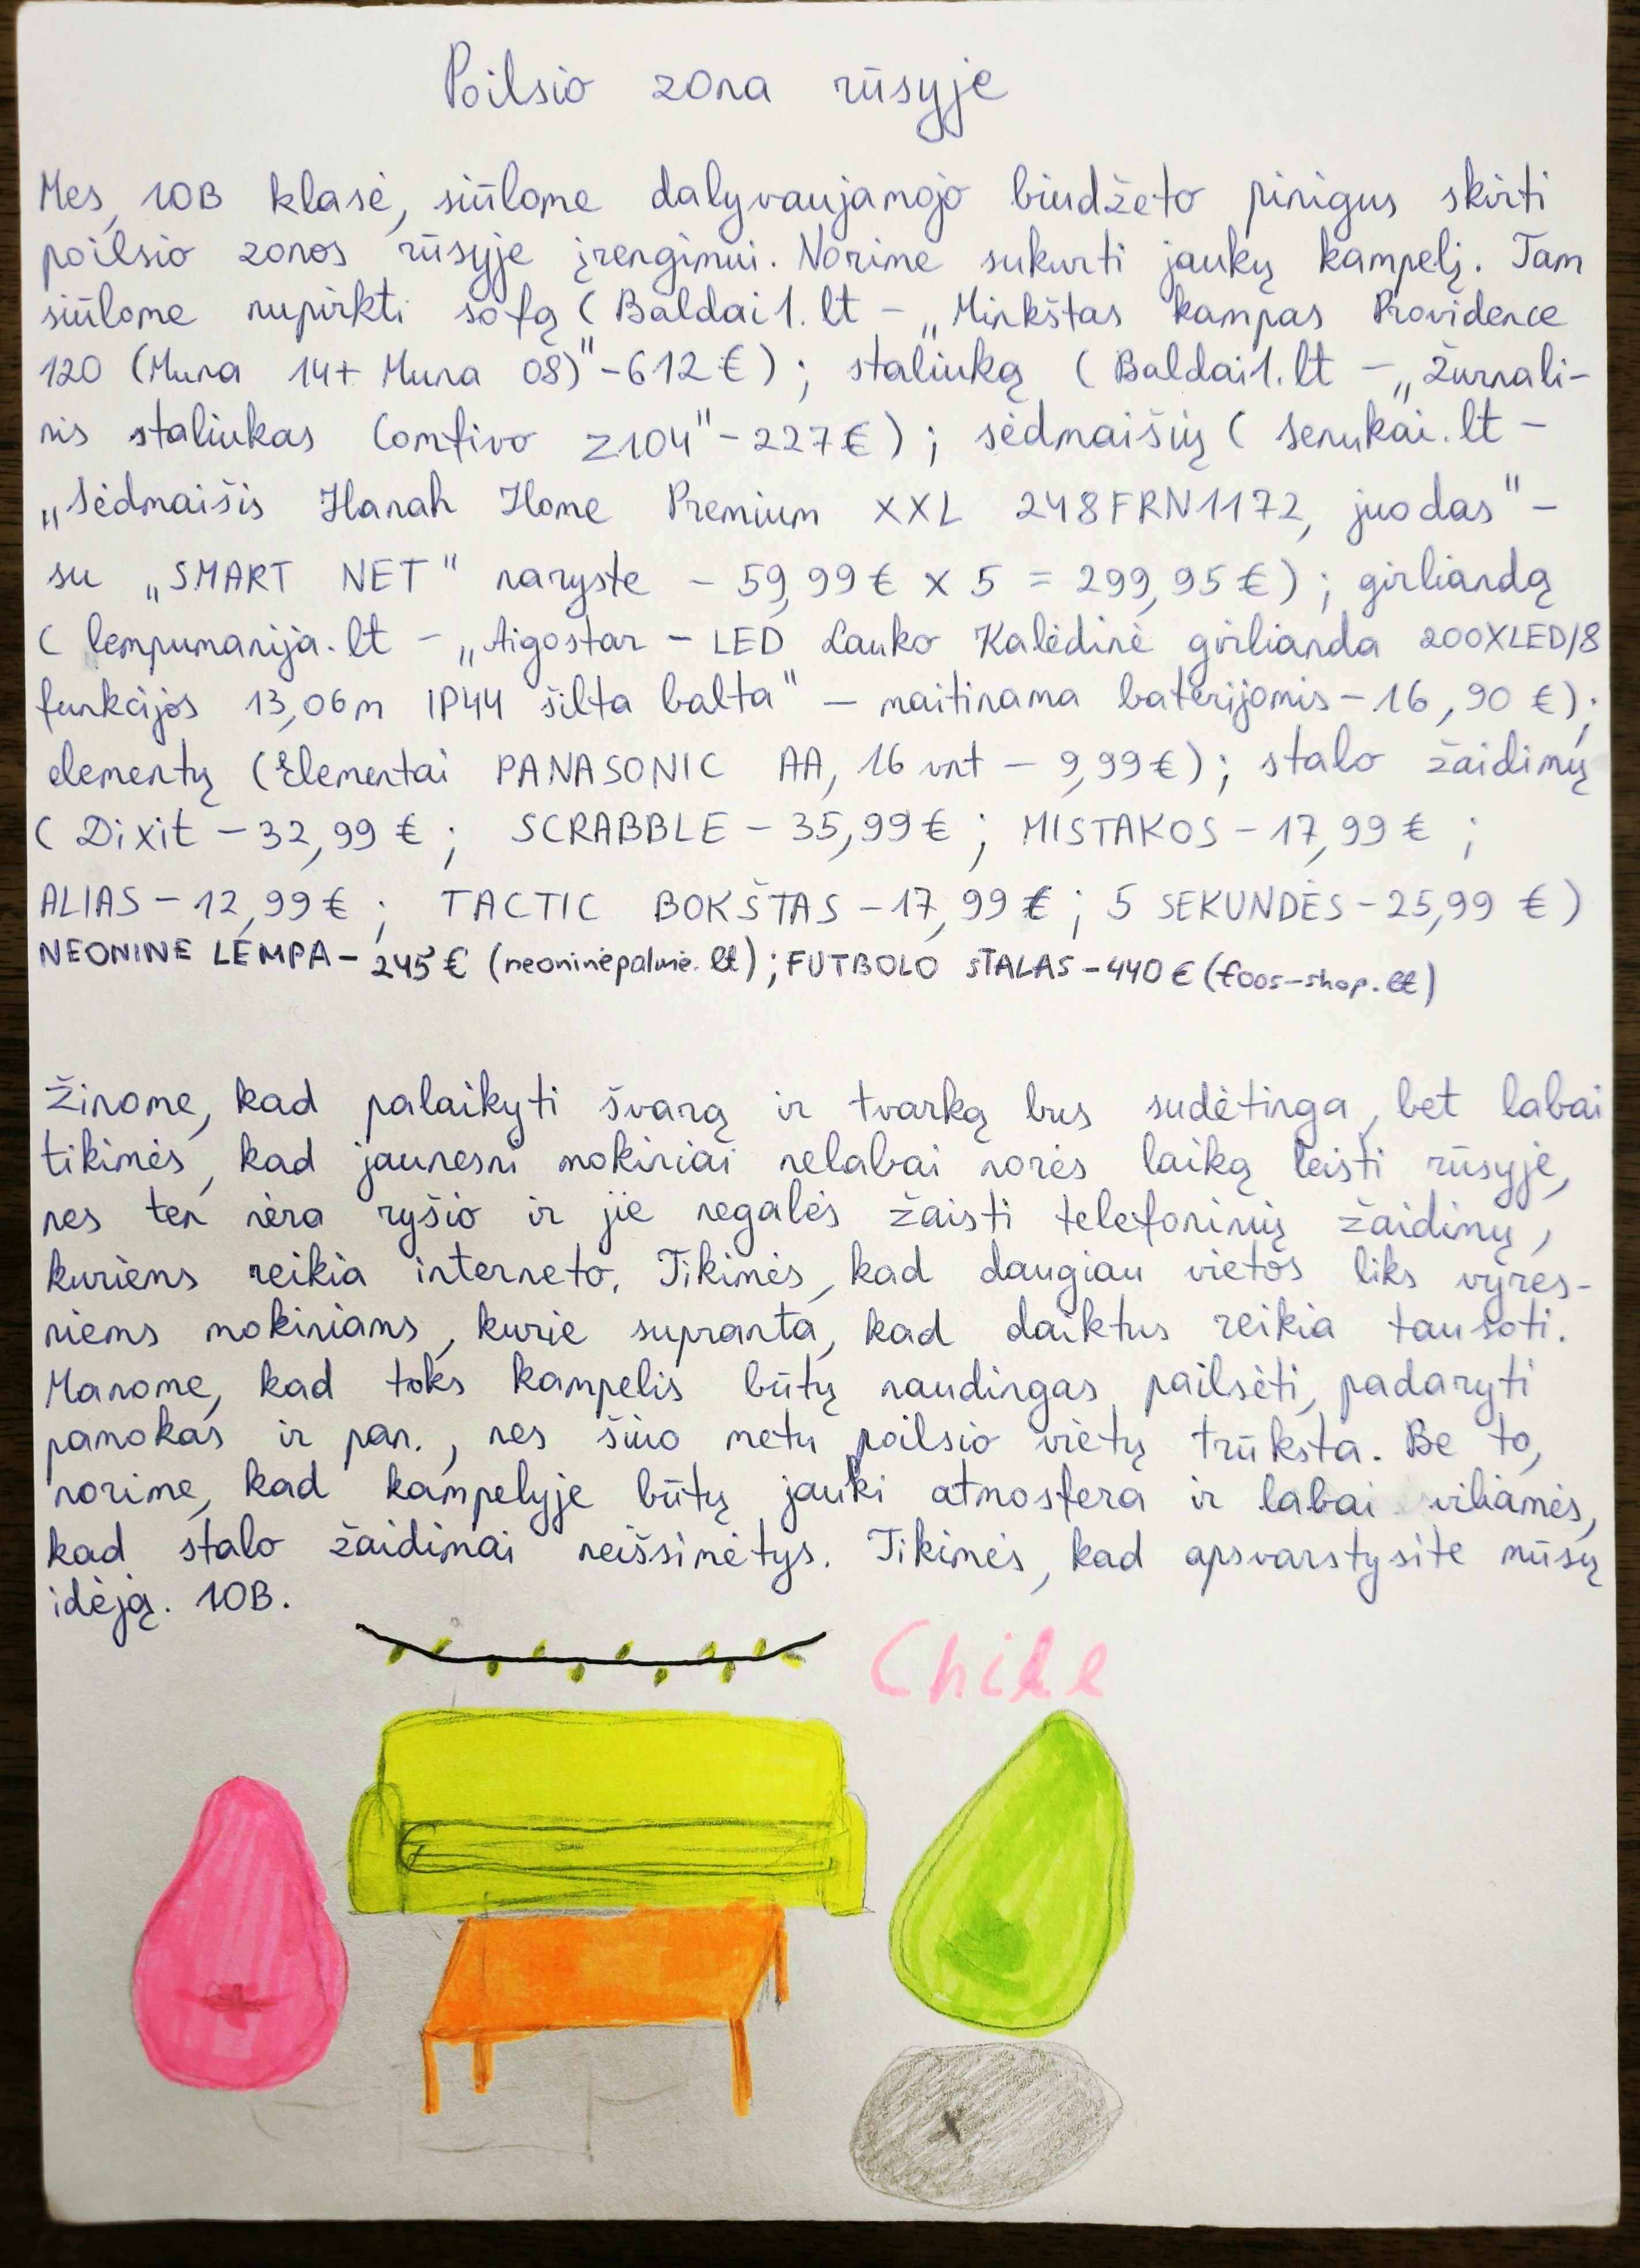 Poilsio zona rūsyje
Mes, 10B klasė, siūlome dalyvaujamojo biudžeto pinigus skirti
poilsio zonos rūsyje įrengimui. Norime sukurti jaukų kampelį. Tam
siūlome nupirkti sofą (Baldai1.lt - „Minkštas kampas Providence
120 (Muna 14+ Muna 08)" - 612 €); staliuką (Baldai1.lt - „Žurnali-
nis staliukas Comfivo Z104" - 227 €); sėdmaišių (senukai.lt -
„Sėdmaišis Hanah Home Premium XXL 248FRN1172, juodas" -
su „SMART NET" naryste - 59,99 € x 5 = 299,95 €); girliandą
(lempumanija.lt - „Aigostar - LED Lauko Kalėdinė girlianda 200XLED/8
funkcijos 13,06m IP44 šilta balta" - maitinama baterijomis - 16,90 €);
elementų (Elementai PANASONIC AA, 16 vnt - 9,99 €); stalo žaidimų
(Dixit - 32,99 €; SCRABBLE - 35,99 €; MISTAKOS - 17,99 €;
ALIAS - 12,99 €; TACTIC BOKŠTAS - 17,99 €; 5 SEKUNDĖS - 25,99 €)
NEONINĖ LEMPA - 245 € (neoninėpalmė.lt); FUTBOLO STALAS - 440 € (foos-shop.lt)
Žinome, kad palaikyti švarą ir tvarką bus sudėtinga, bet labai
tikimės, kad jaunesni mokiniai nelabai norės laiką leisti rūsyje,
nes ten nėra ryšio ir jie negalės žaisti telefoninių žaidimų,
kuriems reikia interneto. Tikimės, kad daugiau vietos liks vyres-
niems mokiniams, kurie supranta, kad daiktus reikia tausoti.
Manome, kad toks kampelis būtų naudingas pailsėti, padaryti
pamokas ir pan., nes šiuo metu poilsio vietų trūksta. Be to,
norime, kad kampelyje būtų jauki atmosfera ir labai viliamės,
kad stalo žaidimai neišsimėtys. Tikimės, kad apsvarstysite mūsų
idėją. 10B.
Chill